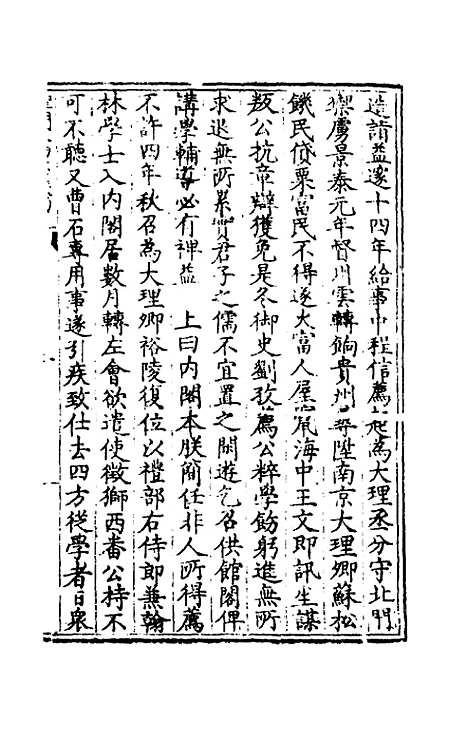 造詣益邃十四年給事中程信薦起為大理丞分守北門
禦虜景泰元年督川雲轉餉貴州尋陞南京大理卿蘇松
饑民貸粟富民不得遂火富人屋竄海中王文即訊坐謀
叛公抗章辯獲免是冬御史劉孜薦公粹學飭躬進無所
求退無所累實君子之儒不宜置之閑遊乞召供館閣俾
講學輔導必有裨益 上曰內閣本朕簡任非人所得薦
不許四年秋召為大理卿裕陵復位以禮部右侍郎兼翰
林學士入內閣居數月轉左會欲遣使徵獅西番公持不
可不聽又曹石專用事遂引疾致仕去四方從學者日衆